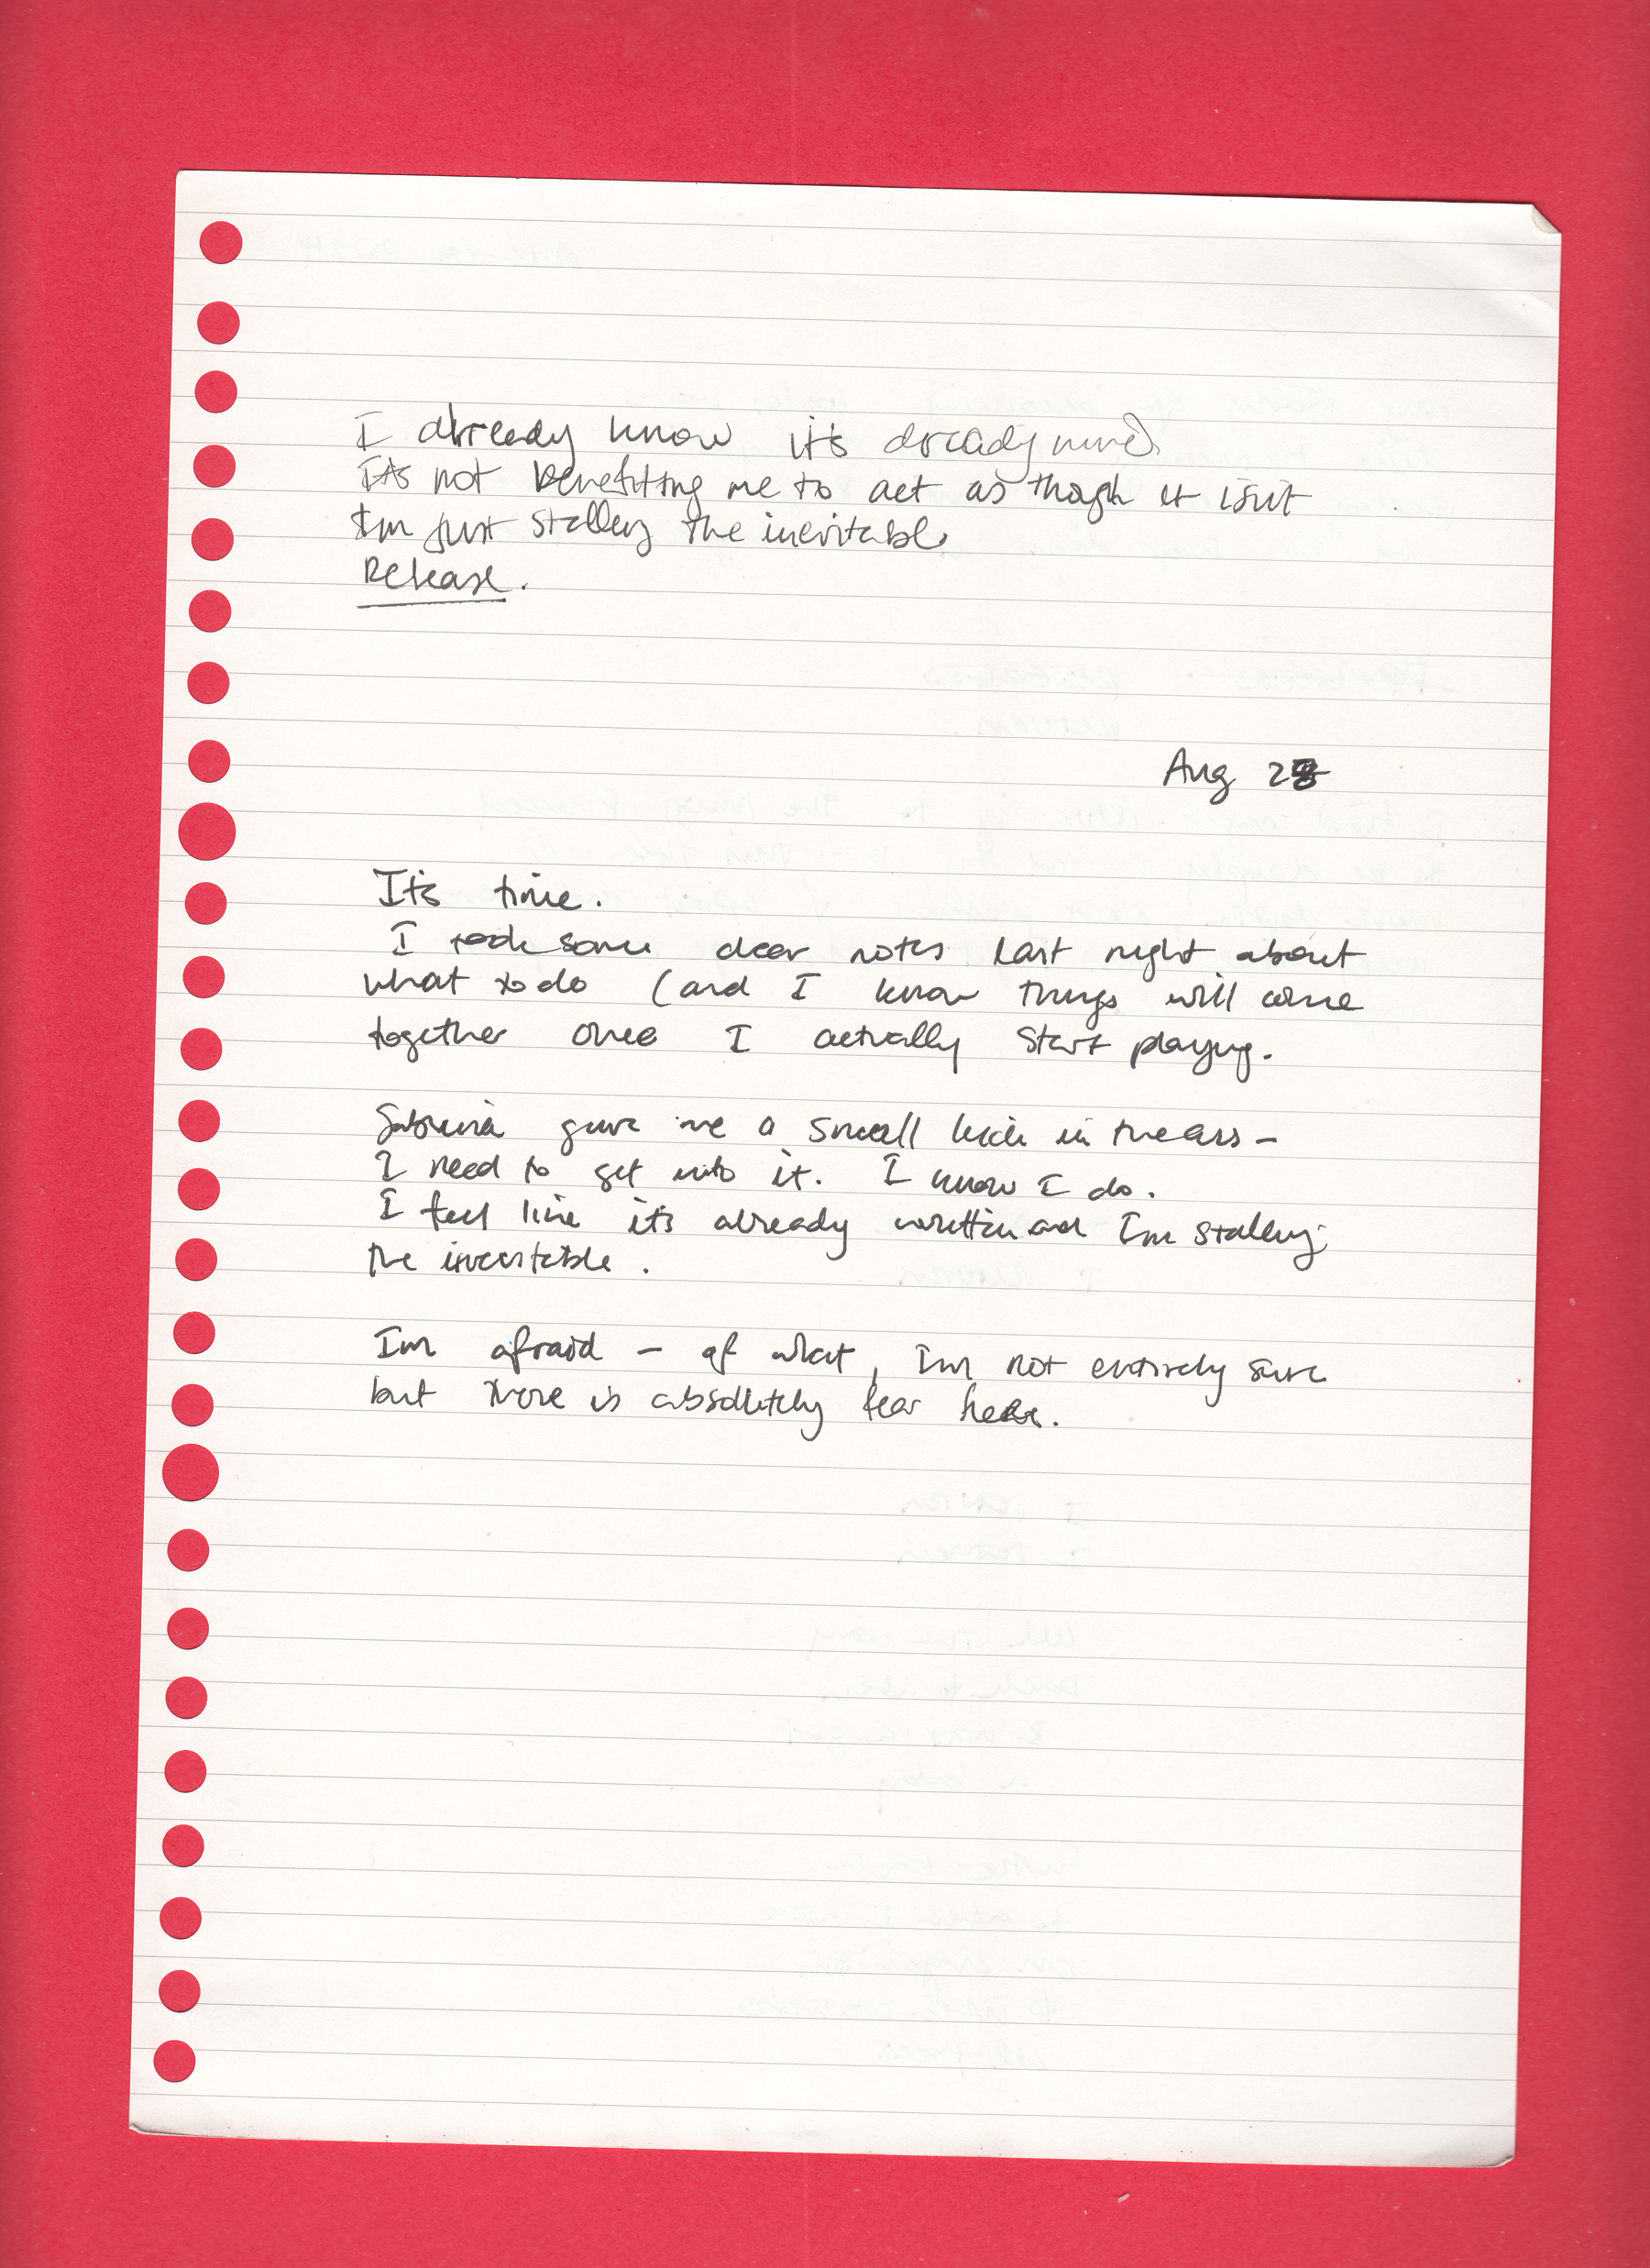 I already know it's already mine
It's not benefitting me to act as though it isn't
I'm just stalling the inevitable
Release.
Aug 28
It's time.
I took some clear notes last night about
what to do (and I know things will come
together once I actually start playing.
Sabrina gave me a small kick in the ass –
I need to get into it. I know I do.
I feel like it's already written and I'm stalling
the inevitable.
I'm afraid – of what, I'm not entirely sure
but there is absolutely fear here.